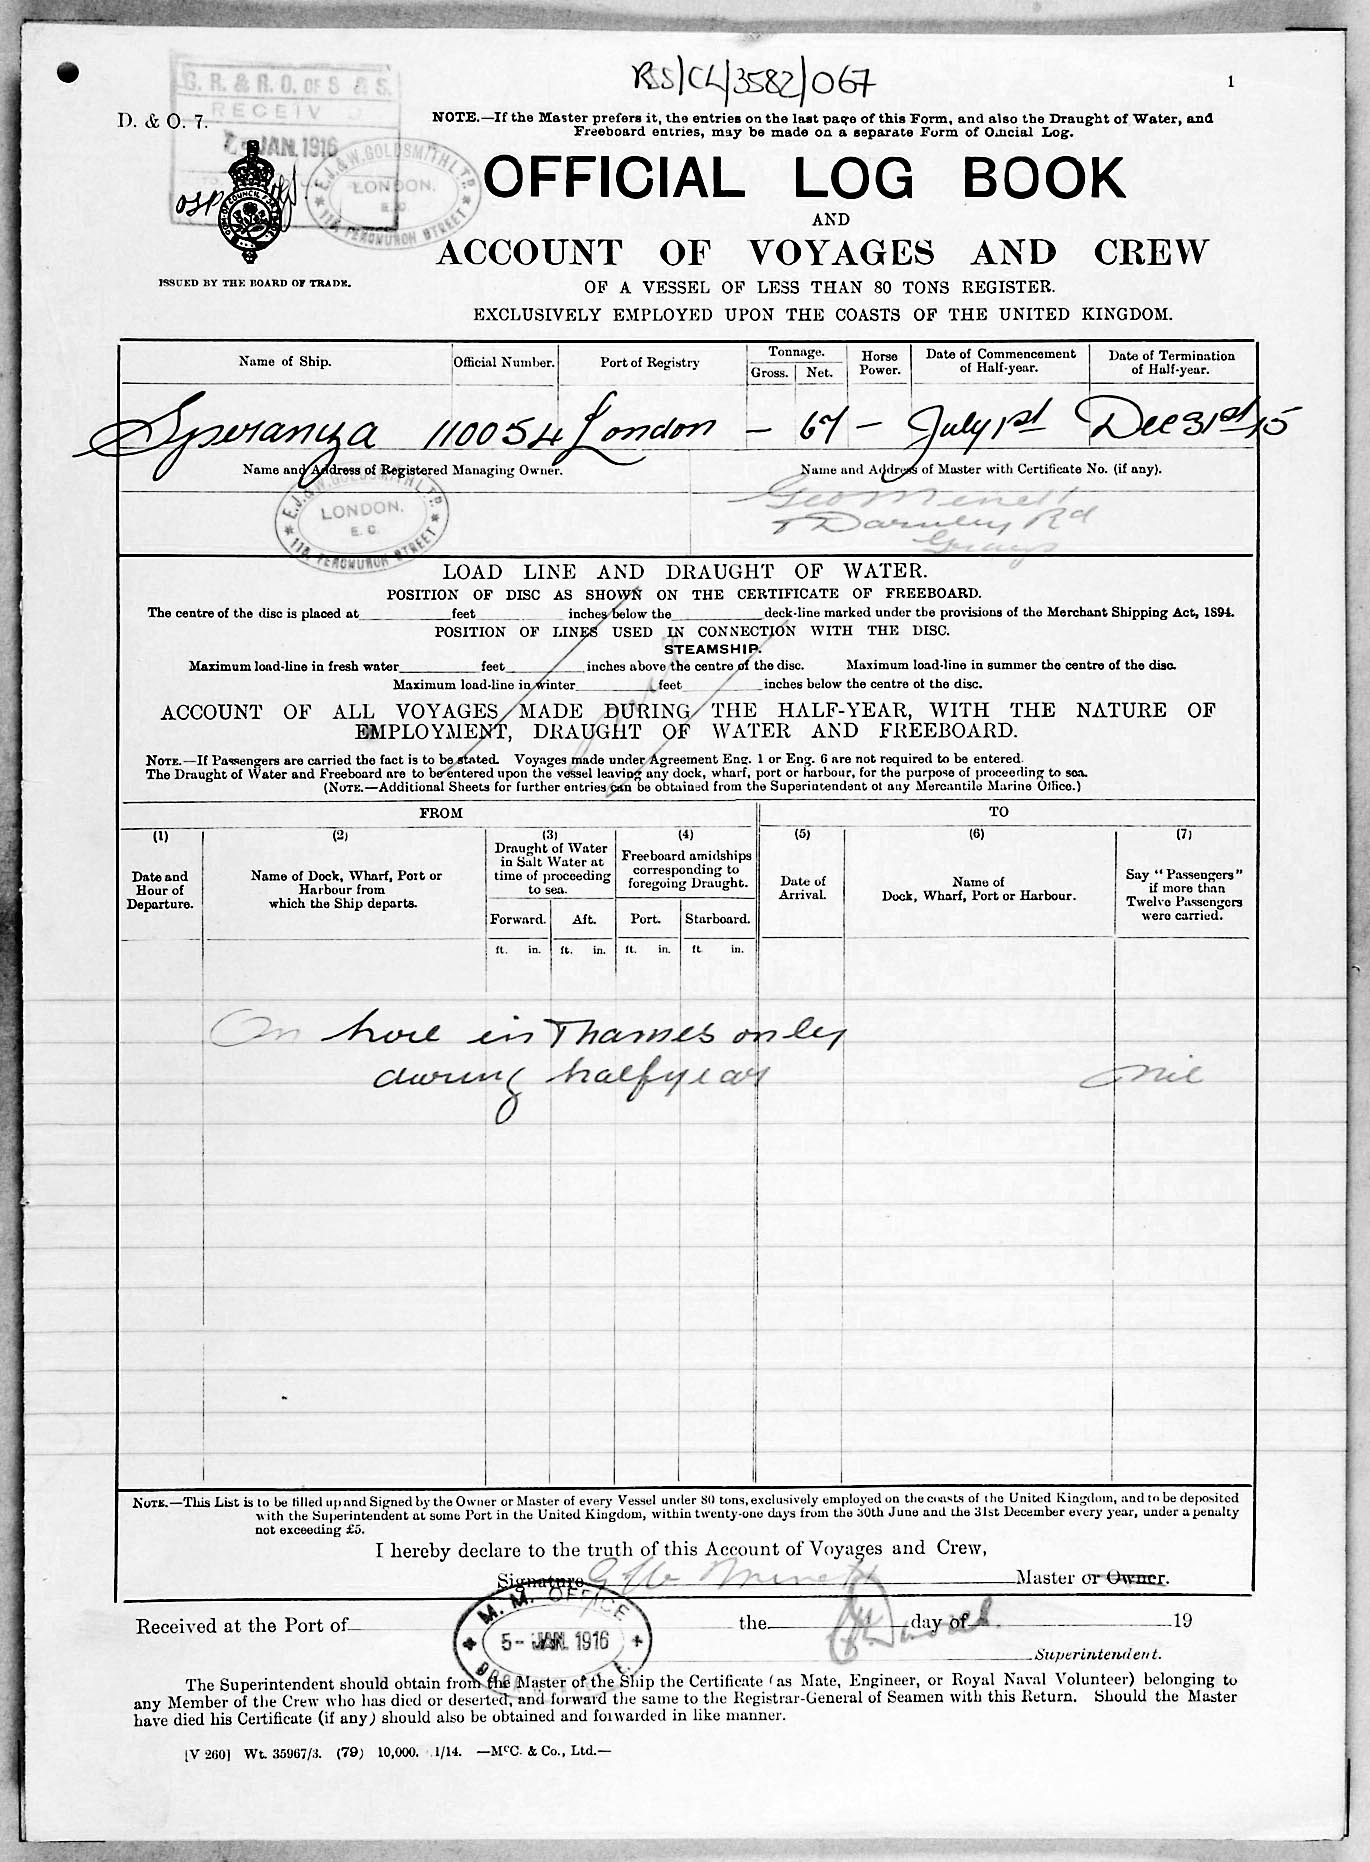 RSS/CL/3582/067
1
G. R. & R. O. OF S & S.
RECEIV D
JAN. 1916
D. & O. 7.
NOTE.—If the Master prefers it, the entries on the last page of this Form, and also the Draught of Water, and
Freeboard entries, may be made on a separate Form of Official Log.
E.J. & W. GOLDSMITH LTD.
LONDON.
E.C.
118, FENCHURCH STREET
OFFICIAL LOG BOOK
AND
ACCOUNT OF VOYAGES AND CREW
ISSUED BY THE BOARD OF TRADE.
OF A VESSEL OF LESS THAN 80 TONS REGISTER.
EXCLUSIVELY EMPLOYED UPON THE COASTS OF THE UNITED KINGDOM.
Name of Ship. Official Number. Port of Registry Tonnage. Gross. Net. Horse Power. Date of Commencement of Half-year. Date of Termination of Half-year.
Speranza 110054 London — 67 — July 1st Dec 31st/15
Name and Address of Registered Managing Owner. Name and Address of Master with Certificate No. (if any).
E.J. & W. GOLDSMITH LTD.
LONDON.
E. C.
118, FENCHURCH STREET
Geo Minett
Darnley Rd
Grays
LOAD LINE AND DRAUGHT OF WATER.
POSITION OF DISC AS SHOWN ON THE CERTIFICATE OF FREEBOARD.
The centre of the disc is placed at feet inches below the deck-line marked under the provisions of the Merchant Shipping Act, 1894.
POSITION OF LINES USED IN CONNECTION WITH THE DISC.
STEAMSHIP.
Maximum load-line in fresh water feet inches above the centre of the disc. Maximum load-line in summer the centre of the disc.
Maximum load-line in winter feet inches below the centre of the disc.
ACCOUNT OF ALL VOYAGES MADE DURING THE HALF-YEAR, WITH THE NATURE OF
EMPLOYMENT, DRAUGHT OF WATER AND FREEBOARD.
NOTE.—If Passengers are carried the fact is to be stated. Voyages made under Agreement Eng. 1 or Eng. 6 are not required to be entered.
The Draught of Water and Freeboard are to be entered upon the vessel leaving any dock, wharf, port or harbour, for the purpose of proceeding to sea.
(NOTE.—Additional Sheets for further entries can be obtained from the Superintendent of any Mercantile Marine Office.)
FROM TO
(1) (2) (3) (4) (5) (6) (7)
Date and Hour of Departure.
Name of Dock, Wharf, Port or Harbour from which the Ship departs.
Draught of Water in Salt Water at time of proceeding to sea.
Freeboard amidships corresponding to foregoing Draught.
Date of Arrival.
Name of Dock, Wharf, Port or Harbour.
Say "Passengers" if more than Twelve Passengers were carried.
Forward. Aft. Port. Starboard.
ft. in. ft. in. ft. in. ft. in.
On hire in Thames only
during halfyear nil
NOTE.—This List is to be filled up and Signed by the Owner or Master of every Vessel under 80 tons, exclusively employed on the coasts of the United Kingdom, and to be deposited
with the Superintendent at some Port in the United Kingdom, within twenty-one days from the 30th June and the 31st December every year, under a penalty
not exceeding £5.
I hereby declare to the truth of this Account of Voyages and Crew,
Signature Minett Master or Owner.
Received at the Port of the day of 19
M. M. OFFICE
5 - JAN. 1916
Superintendent.
The Superintendent should obtain from the Master of the Ship the Certificate (as Mate, Engineer, or Royal Naval Volunteer) belonging to
any Member of the Crew who has died or deserted, and forward the same to the Registrar-General of Seamen with this Return. Should the Master
have died his Certificate (if any) should also be obtained and forwarded in like manner.
[V 260] Wt. 35967/3. (79) 10,000. 1/14. —McC. & Co., Ltd.—